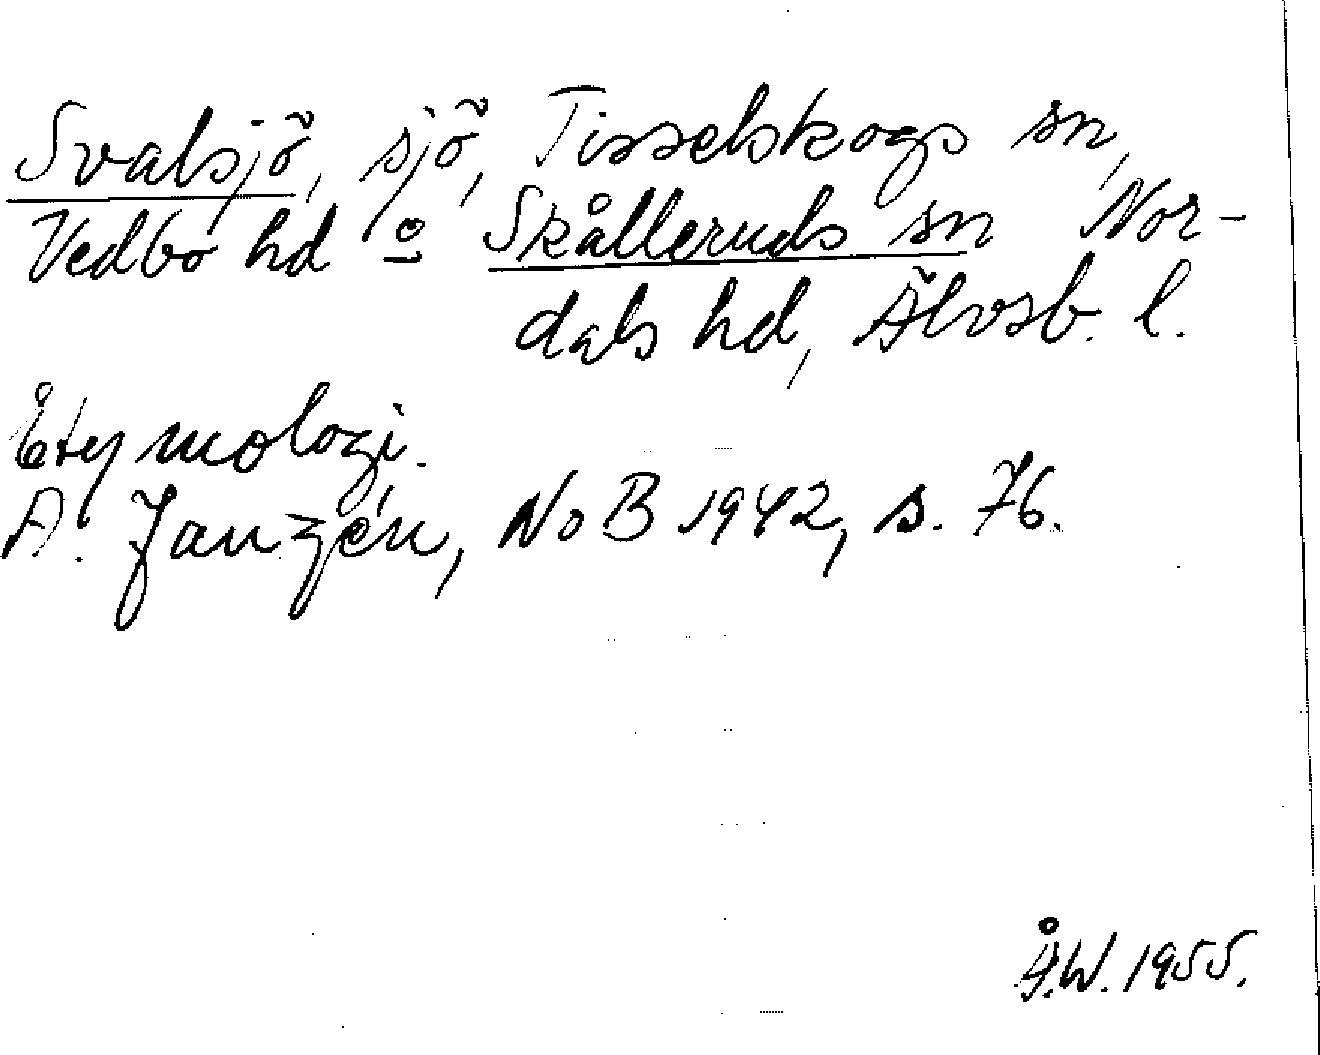 Svalsjö, sjö, Tisselskogs sn,
Vedbo hd o Skålleruds sn Nor-
dals hd, Älvsb. l.
Etymologi.
A. Janzén, NoB 1942, s. 76.
Å.W. 1955.